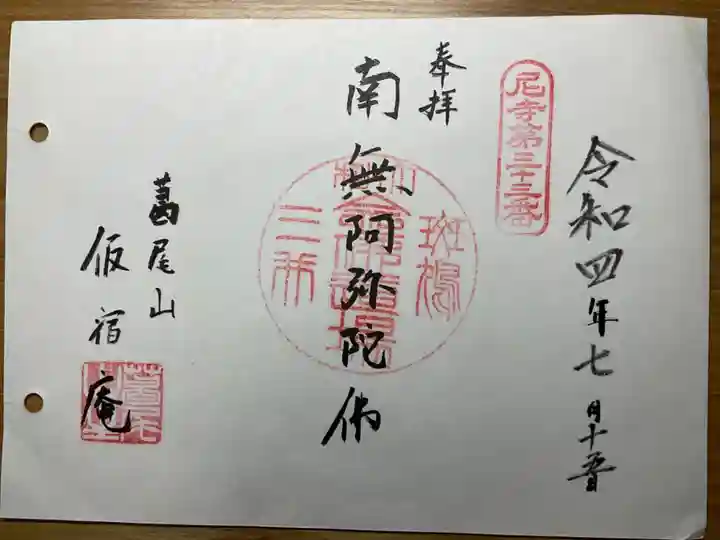 令和四年七月十五日
尼寺第三十三番
奉拝
南無阿弥陀佛
斑鳩
三井
葛尾山
仮宿庵